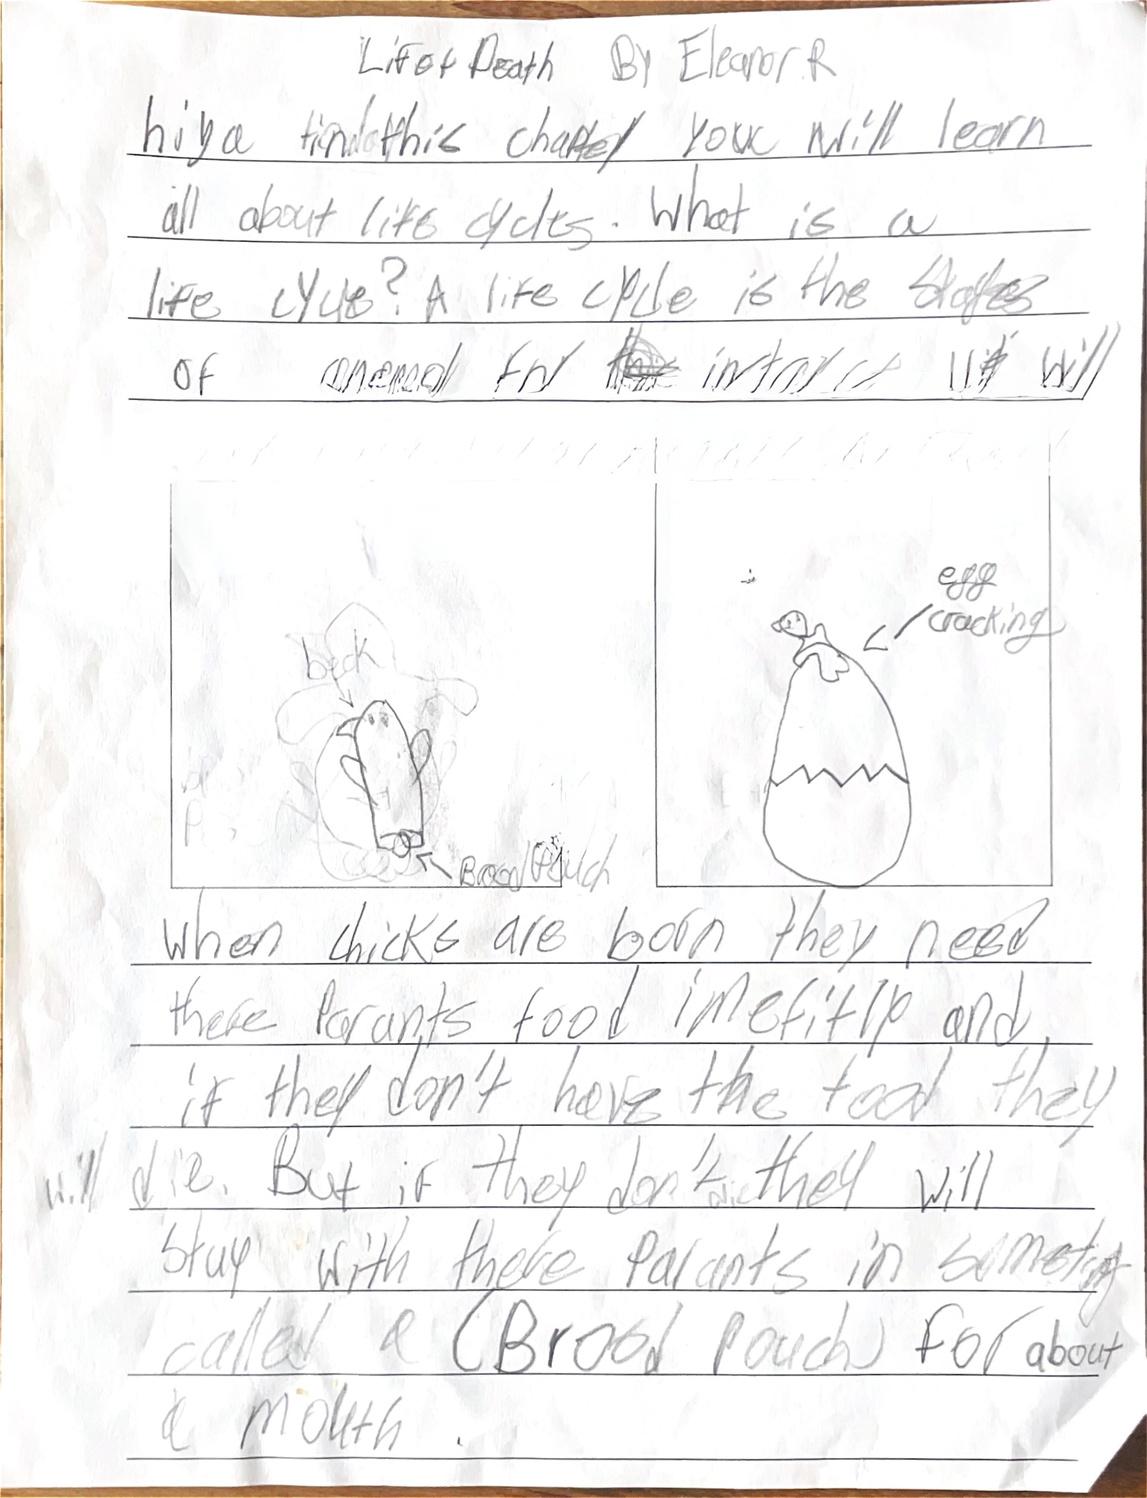 Lif of Death By Eleanor R
hiya in this chapter you will learn
all about life cycles. What is a
life cycle? A life cycle is the stages
of anemal for instance it will
beck
egg
cracking
Brood Pouch
When chicks are born they need
there Parants food imefitlp and
if they don't have the food they
will die. But if they don't die they will
stay with there Parants in someting
called a (Brood Pouch) For about
a mouth.